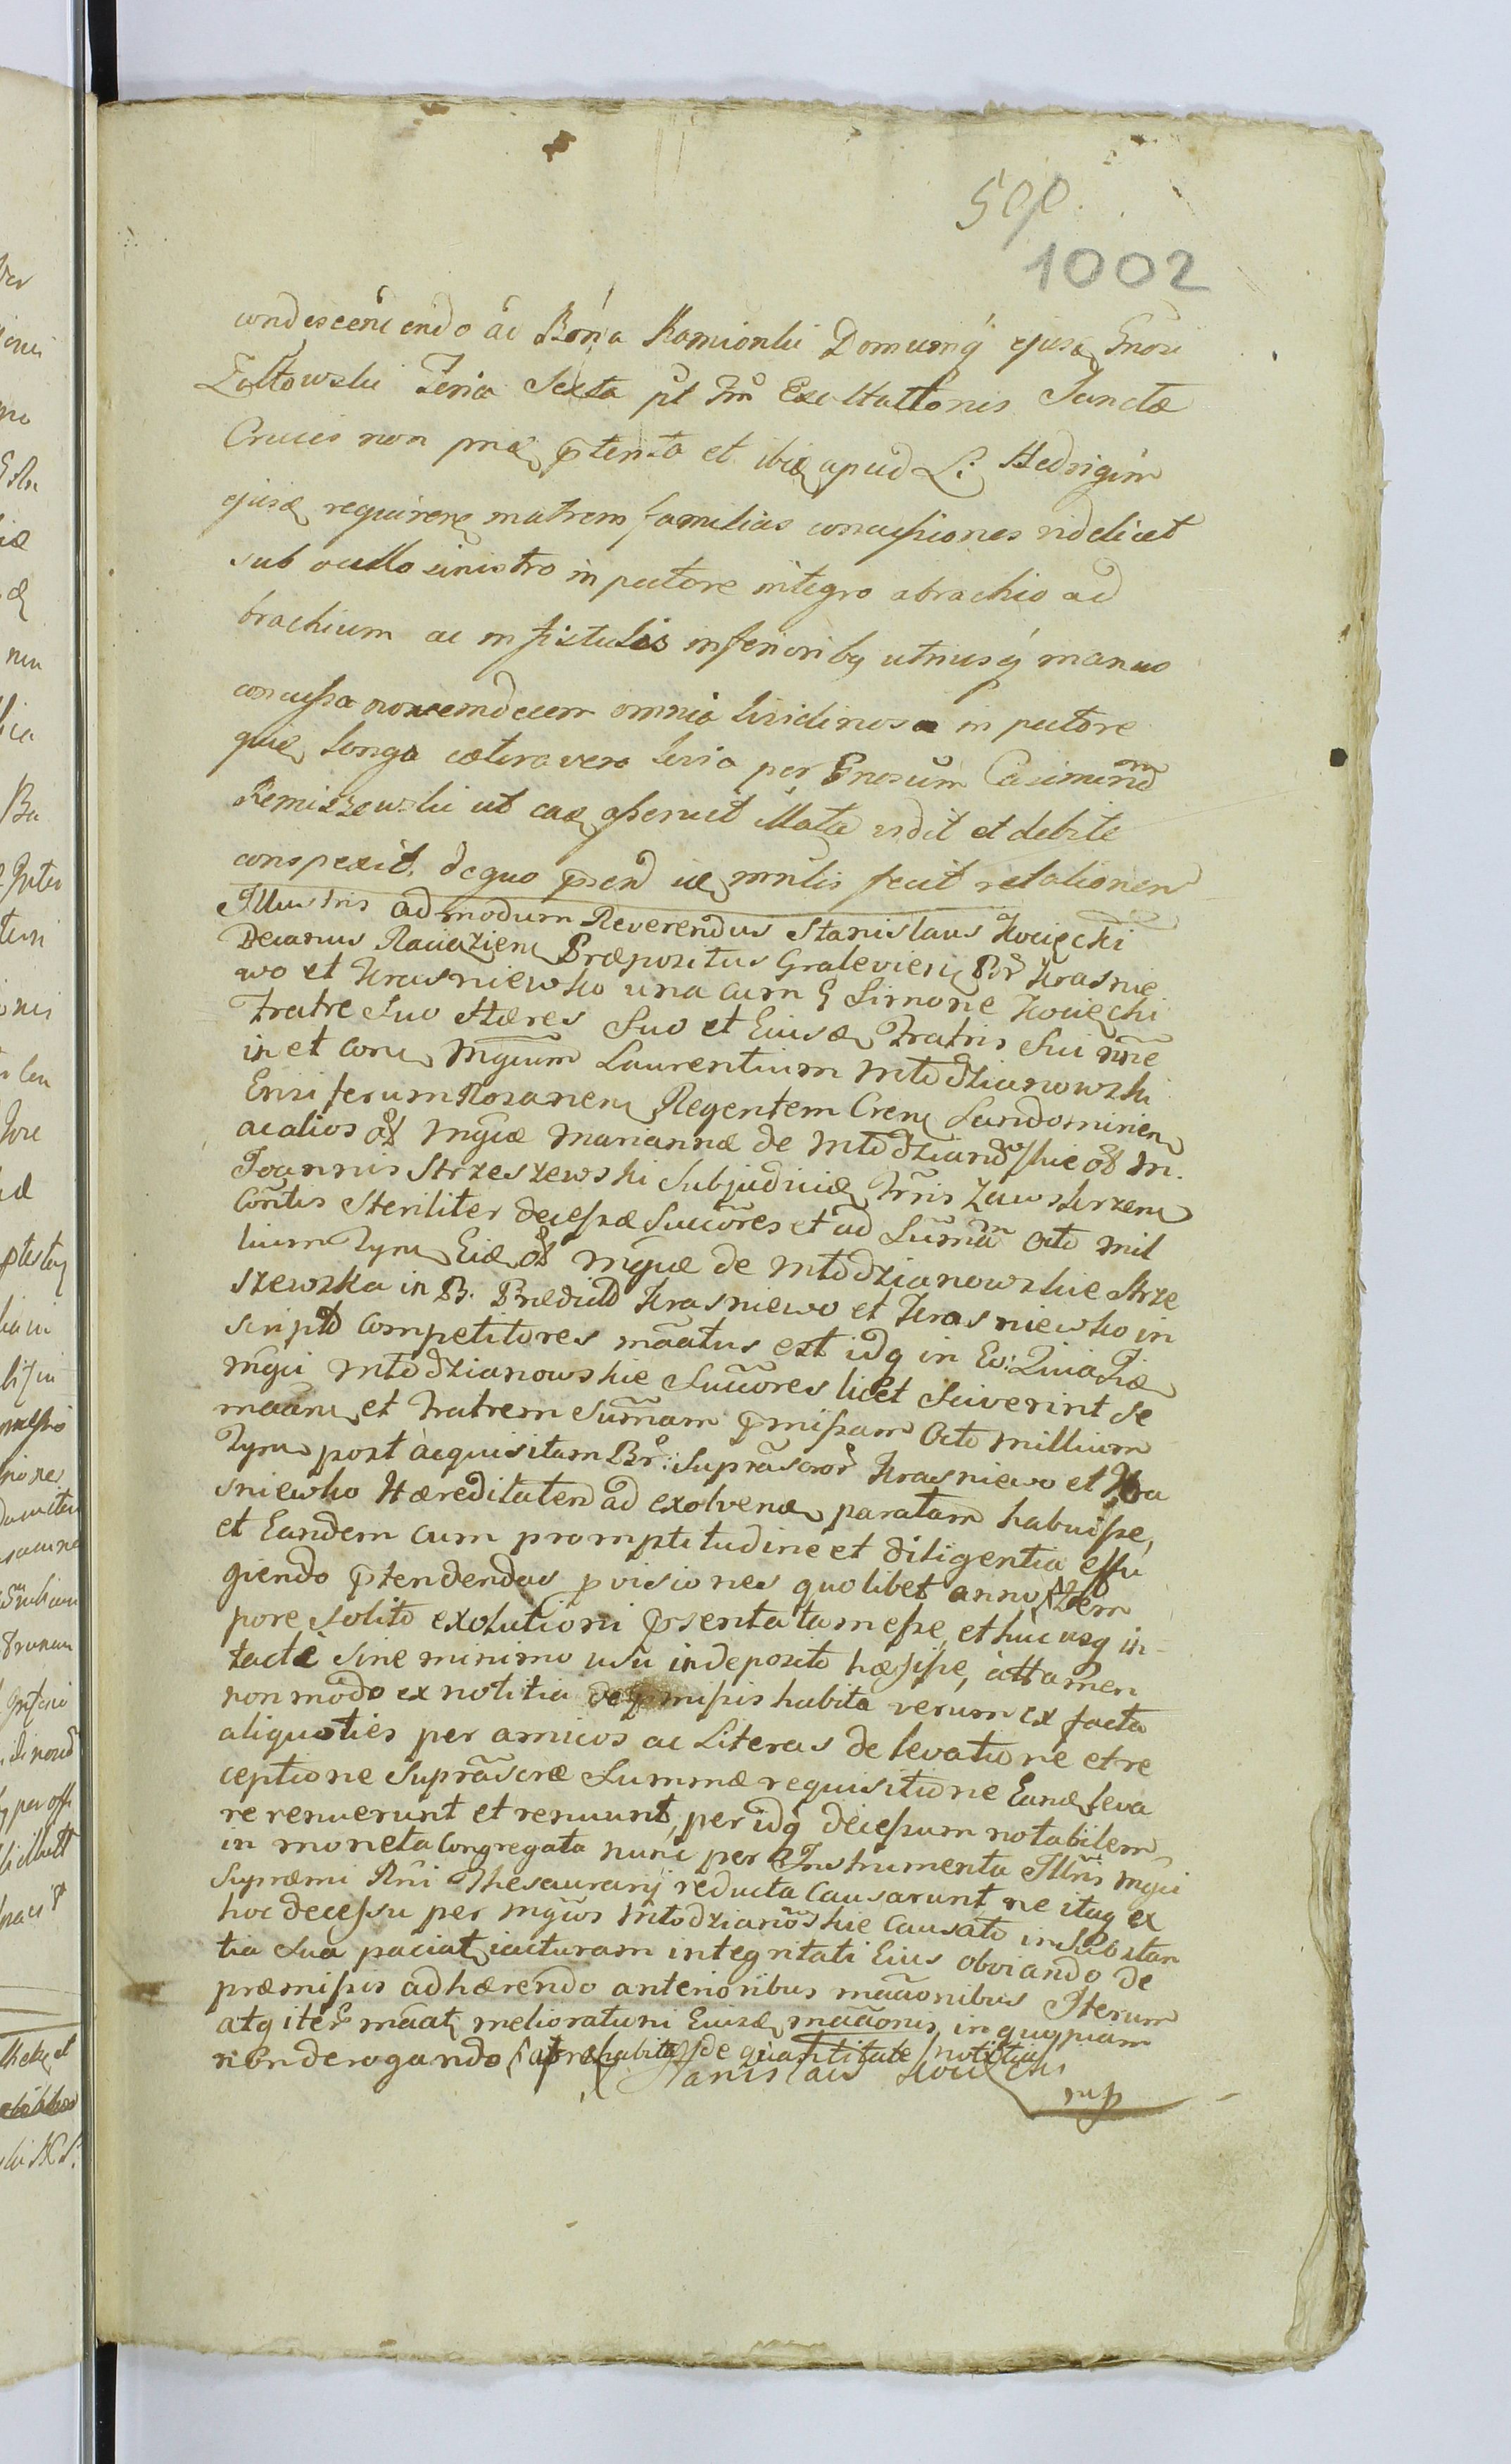 500.
1002
condescendendo ad Bona Kamionki Domumq ejusd Gnosi
Żołtowski Feria Sexta pt Fm Exaltationis Sanctæ
Crucis non pnæ ptenta et ibiq apud L: Hedvigim
ejusd requirene matrem familias concussiones videlicet
sub ocullo sinistro in pectore integro abrachio ad
brachium ac in fistulis inferioribq utriusq manus
concussa novemdecem omnia lividinosa in pectore
quæ longa cætera vero levia per Gnosum Casimirum
Remiszewski ut eaq asseruit illata vidit et debite
conspexit, de quo prsend ide mnlis fecit relationem
Illustris admodum Reverendus Stanislaus Kocięcki
Decanus Raciązien Præpozitus Gralevien Br Krasnie
wo et Krasniewko una cum G Simone Kocięcki
Fratre Suo Hæres Suo et Eiusd Fratris Sui nne
in et Coru Mgcum Laurentium Młodzianowski
Ensiferum Rozanen Regentem Cren Sandomirien
ac alios ol Mgcæ Mariannæ de Młodzianowskie ol M.
Joannis Strzeszewski Subjudicis Trris Zawskrzen
Contis Steriliter decessæ Succores et ad Summam Octo mil
lium Tyn Eid ol Mgcæ de Młodzianowskie Strze
szewska in B. Prædictd Krasniewo et Krasniewko in
scripto Competitores maatus est idq in Eo: Quia Iid
Mgci Młodzianowskie Succores licet Sciverint Se
maann et Fratrem Summam pmissam Octo millium
Tyn post acquisitam Br: Suprascror Krasniewo et Kra
sniewko Hæreditatem ad exolvend paratam habuisse,
et Eandem cum promptitudine et diligentia effu
giendo ptendendas pvisiones quolibet anno, tem
pore solito exolutioni psentatam esse, et huc usq in-
tacte sine minimo usu in deposito hæsisse, attamen
non modo ex notitia de pmissis habita verum ex facta
aliquoties per amicos ac Literas de levatione et re
ceptione Suprascræ Summæ requisitione Eand leva
re renuerunt et renuunt, per idq decessum notabilem
in moneta Congregata nunc per Instrumenta Illris Mgci
Supræmi Rni Thesaurarij reducta Causarunt, ne itaq ex
hoc decessu per Mgcos Młodzianoskie Causato in Substan
tia Sua paciat jacturam integritati Eius obviando de
præmissis adhærendo anterioribus maaonibus Iterum
atq iter maat, melioraturi Eiusd maaonis, in quopiam
non derogando habita de quantitate notitia
Stanislaus Kocięcki
mp